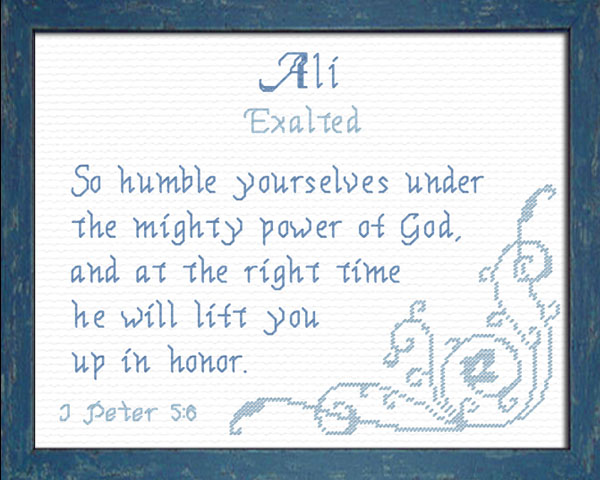 Ali
Exalted
So humble yourselves under
the mighty power of God,
and at the right time
he will lift you
up in honor.
I Peter 5:6